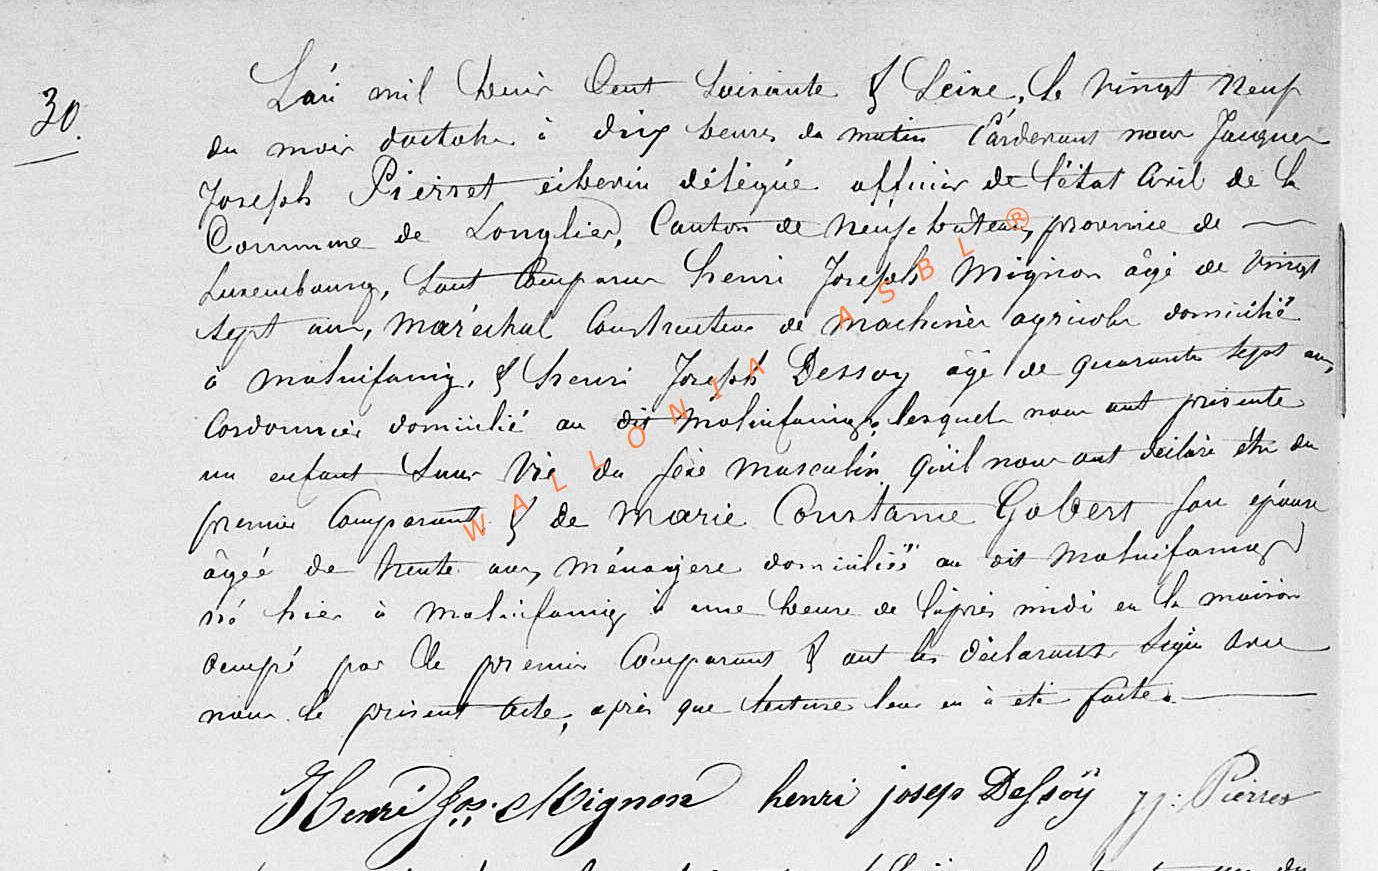 30.
L'an mil huit Cent Soixante & Seize, le vingt neuf
du mois d'octobre à dix heures du matin Pardevant nous Jacques
Joseph Pierret échevin délégué officier de l'état Civil de la
Commune de Longlier, Canton de Neufchateau, province de
Luxembourg, Sont Comparus henri Joseph Mignon âgé de vingt
sept ans, maréchal Constructeur de machines agricoles domicilié
à molinfaing, & henri Joseph Dessoy âgé de quarante sept ans,
Cordonnier domicilié au dit molinfaing, lesquels nous ont présenté
un enfant Sans Vie du sexe masculin qu'il nous ont déclaré être du
premier Comparant & de Marie Constance Gobert son épouse
âgée de trente ans, ménagere domiciliée au dit molinfaing
né hier à molinfaing à une heure de l'après midi en la maison
ocupé par le premier Comparant & ont les déclarants signé avec
nous le présent acte, après que lecture leur en à été faite.
Henri Jos: Mignon henri josep Dessoÿ JJ: Pierret
WALLONIA ASBL ®